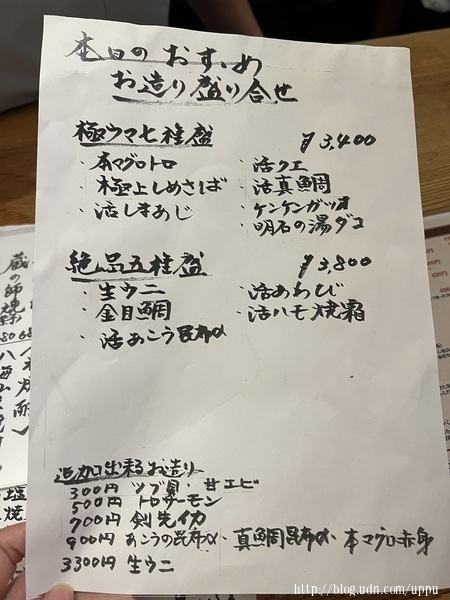 本日のおすゝめ
お造り盛り合せ
極ウマ七種盛 ¥3,400
・本マグロトロ ・活クエ
・極上しめさば ・活真鯛
・活しまあじ ・ケンケンガツオ
・明石の湯ダコ
絶品五種盛 ¥3,800
・生ウニ ・活あわび
・金目鯛 ・活ハモ焼霜
・活あこう昆布〆
追加出来るお造り
300円 ツブ貝・甘エビ
500円 トロサーモン
700円 剣先イカ
900円 あこうの昆布〆・真鯛昆布〆・本マグロ赤身
3300円 生ウニ
http://blog.udn.com/uppu